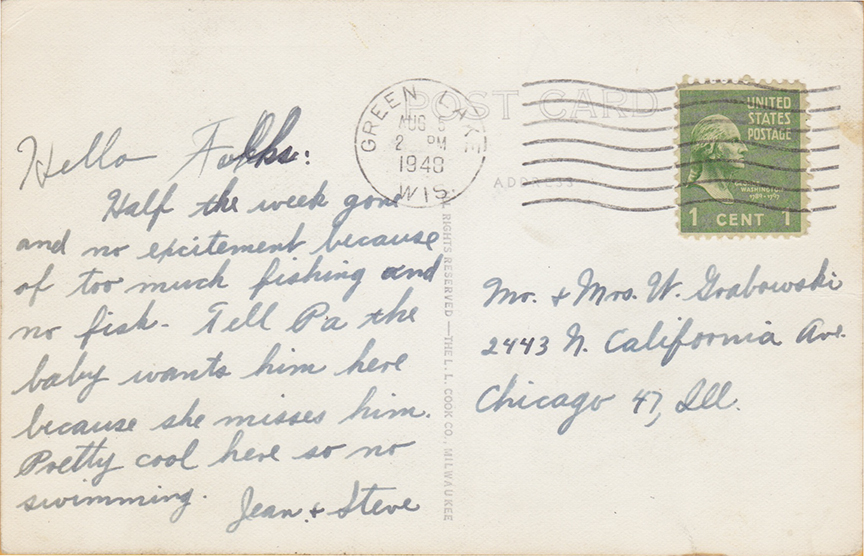 Hello Folks:
Half the week gone
and no excitement because
of too much fishing and
no fish. Tell Pa the
baby wants him here
because she misses him.
Pretty cool here so no
swimming.
Jean & Steve
POST CARD
ADDRESS
GREEN LAKE
AUG 5
2 PM
1948
WIS.
UNITED
STATES
POSTAGE
GEORGE
WASHINGTON
1789-1797
1 CENT 1
RIGHTS RESERVED — THE L. L. COOK CO., MILWAUKEE
Mr. & Mrs. W. Grabowski
2443 N. California Ave.
Chicago 47, Ill.